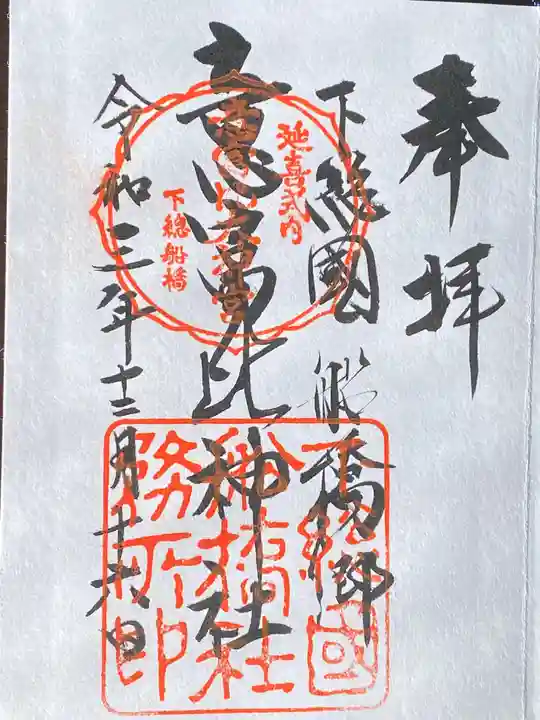 奉拝
下総國 船橋郷
意富比神社
令和三年十二月十六日
延喜式内
意富比神社
下総船橋
下總國
船橋社
務所印